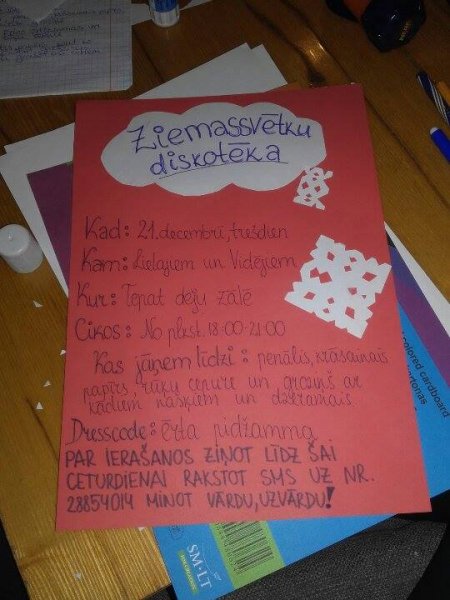 Ziemassvētku
diskotēka
Kad: 21. decembrī, trešdien
Kam: Lielajiem un Vidējiem
Kur: Tepat deju zālē
Cikos: No plkst. 18:00-21:00
Kas jāņem līdzi: penālis, krāsainais
papīrs, rūķu cepure un groziņš ar
kādiem našķiem un dzērieniis.
Dresscode: ērta pidžamma
PAR IERAŠANOS ZIŅOT LĪDZ ŠAI
CETURDIENAI RAKSTOT SMS UZ NR.
28854014 MINOT VĀRDU, UZVĀRDU!
colored cardboard
SM·LT